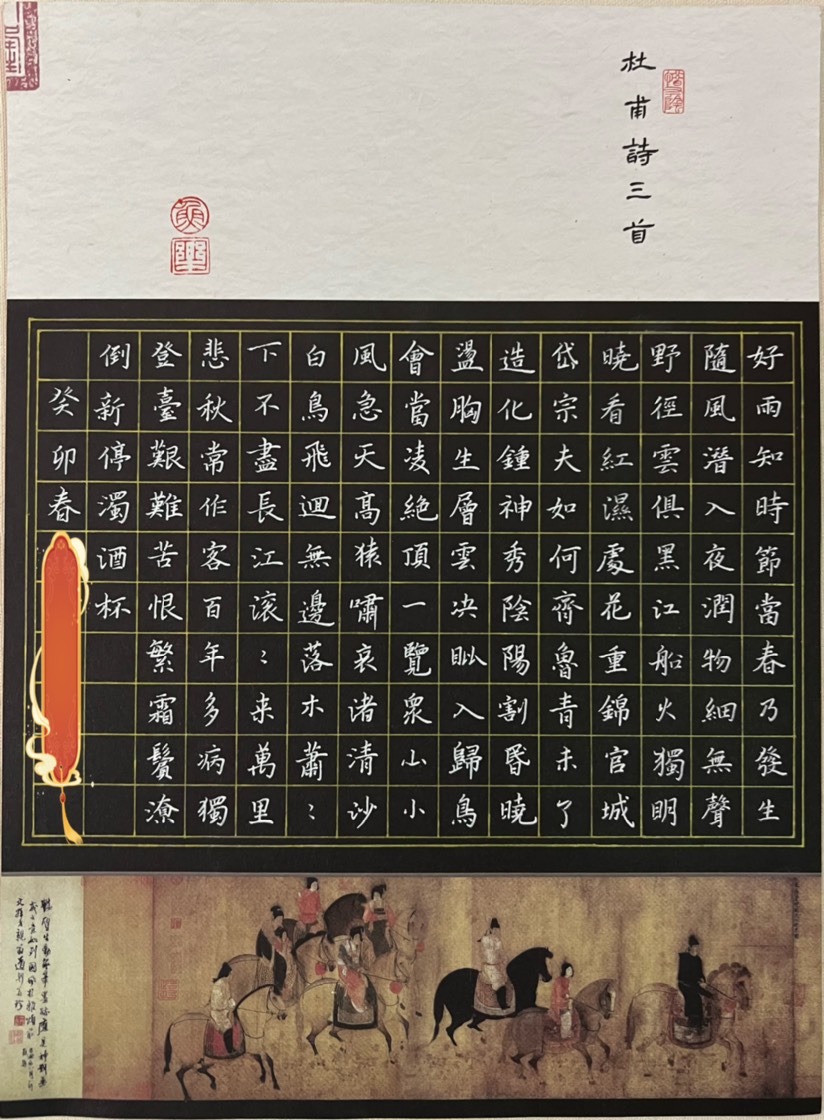 杜甫詩三首
惜寸陰
好雨知時節當春乃發生
隨風潛入夜潤物細無聲
野徑雲俱黑江船火獨明
曉看紅濕處花重錦官城
岱宗夫如何齊魯青未了
造化鍾神秀陰陽割昏曉
盪胸生層雲决眦入歸鳥
會當凌絕頂一覽衆山小
風急天高猿嘯哀渚清沙
白鳥飛迴無邊落木蕭〻
下不盡長江滾〻来萬里
悲秋常作客百年多病獨
登臺艱難苦恨繁霜鬢潦
倒新停濁酒杯
癸卯春